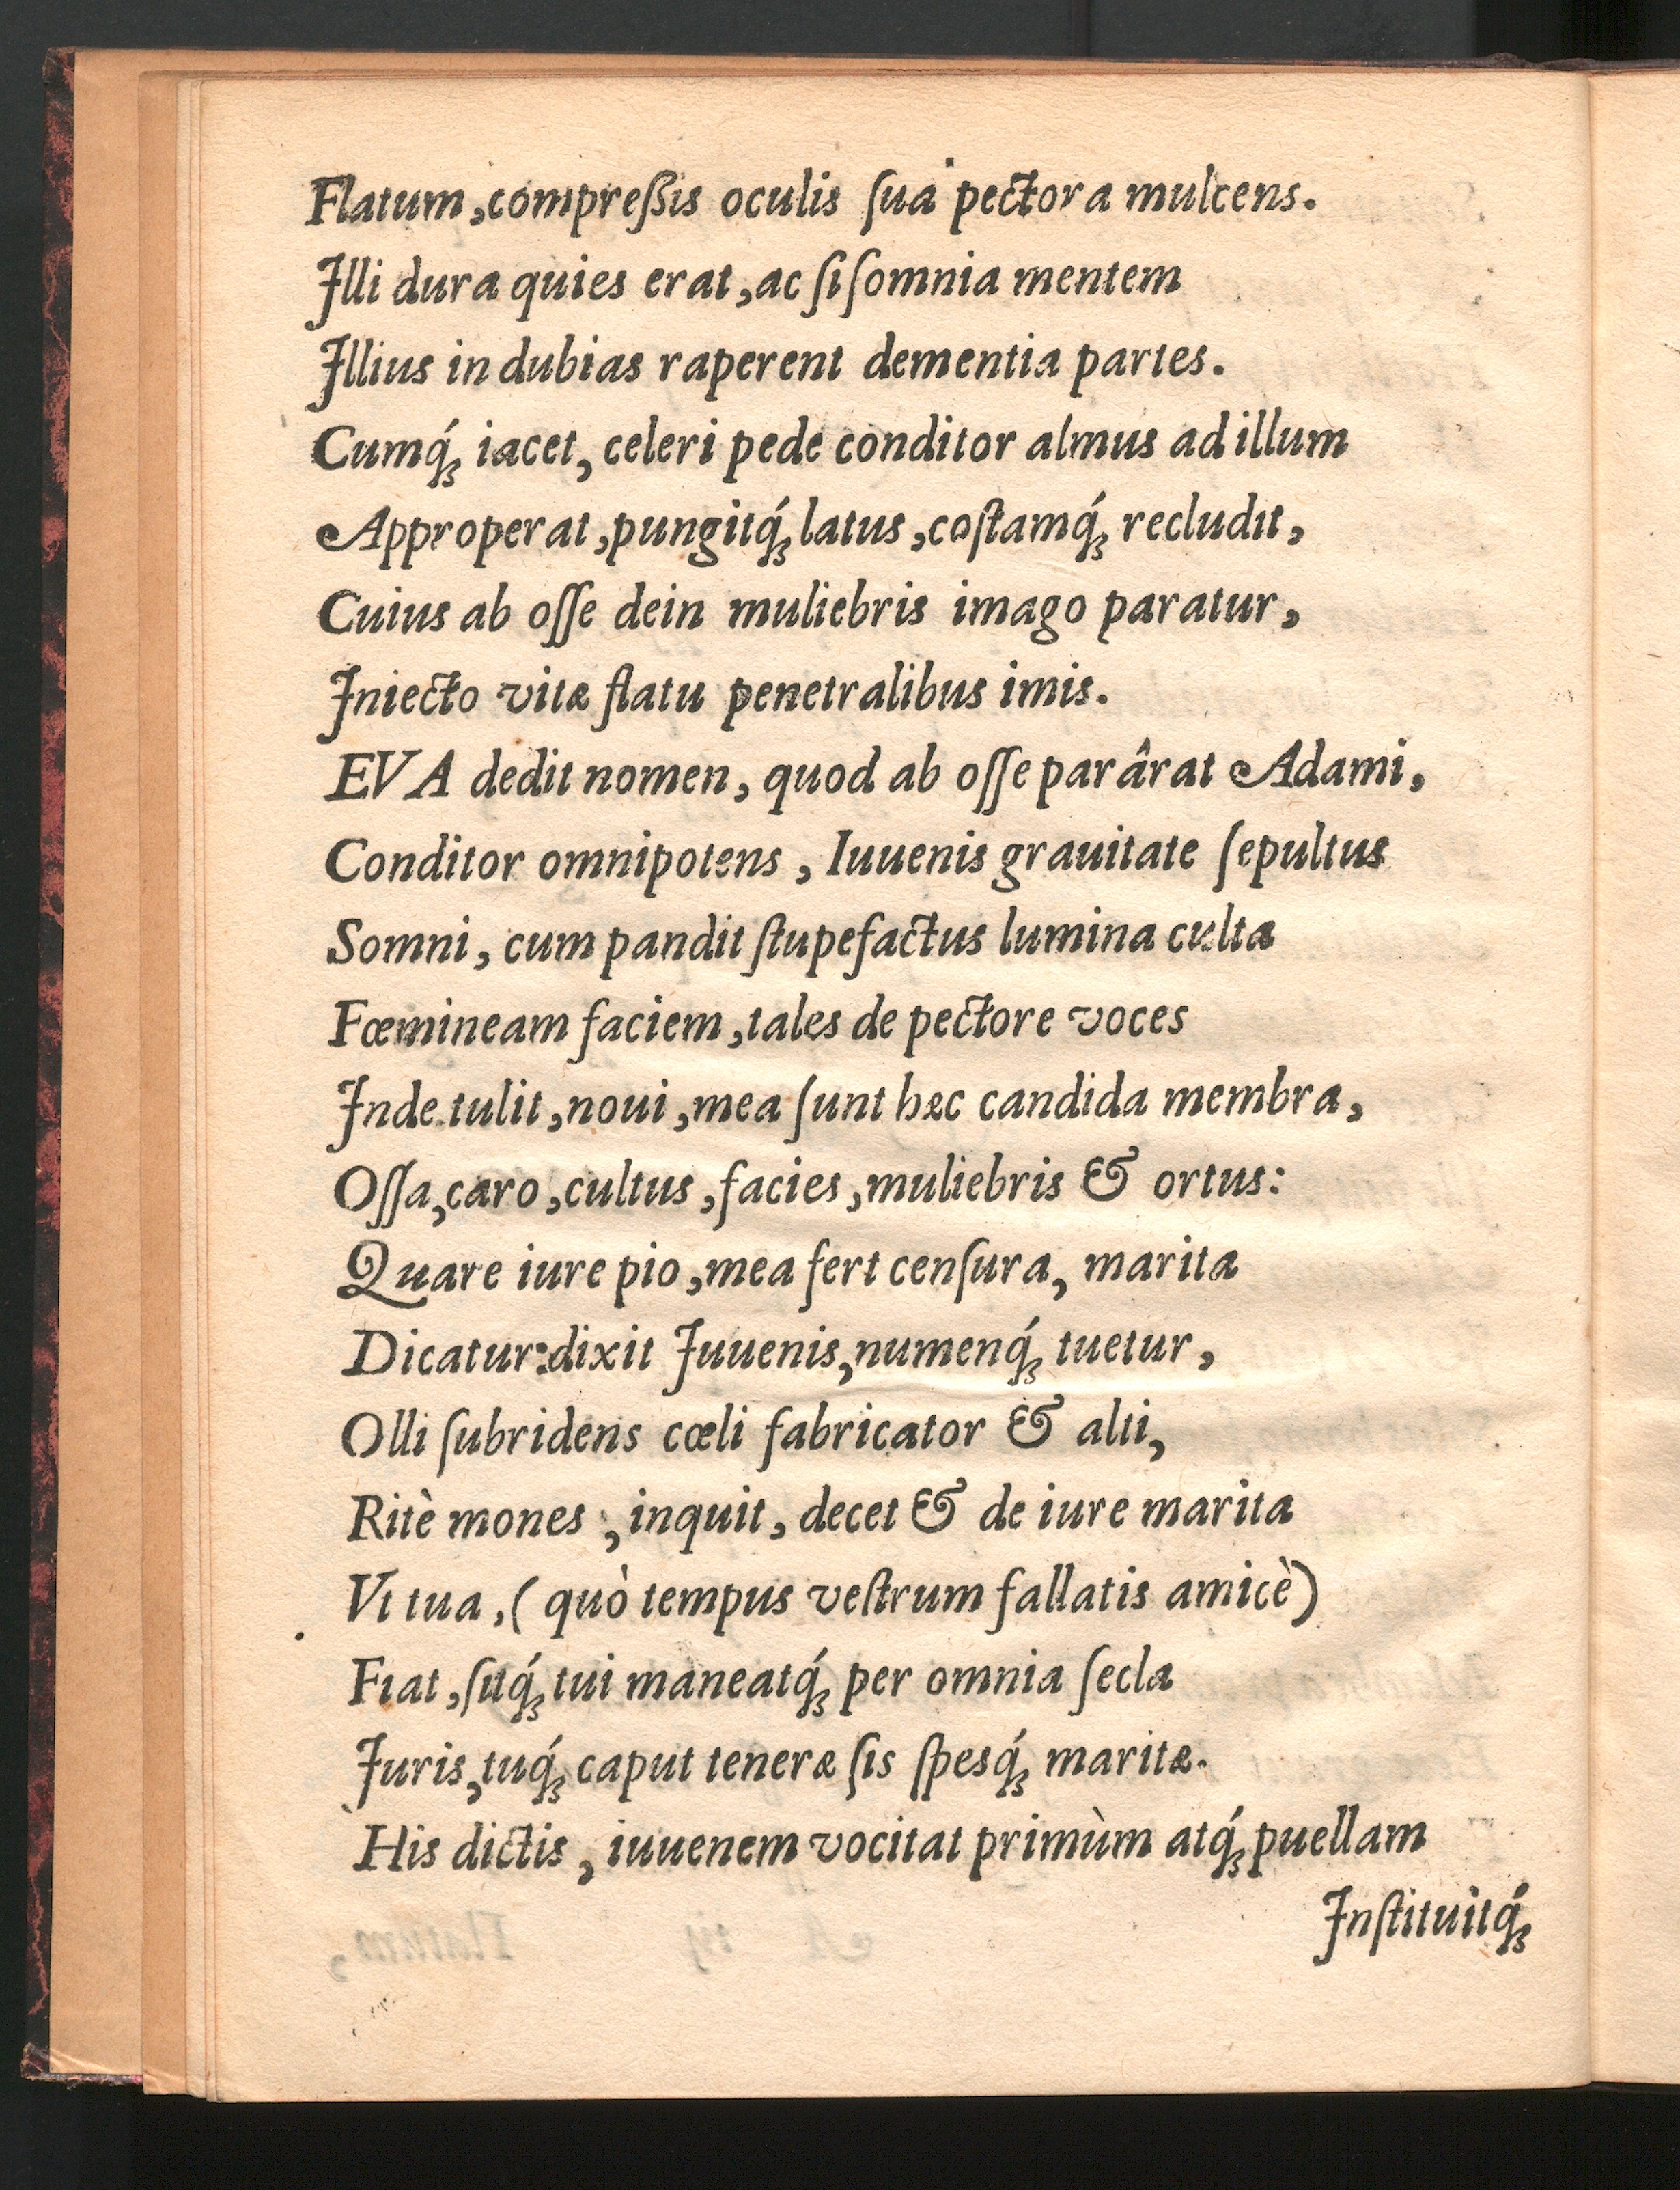 Flatum, compreßis oculis ſua pectora mulcens.
Illi dura quies erat, ac ſi ſomnia mentem
Illius in dubias raperent dementia partes.
Cumq́ꝫ iacet, celeri pede conditor almus ad illum
Approperat, pungitq́ꝫ latus, coſtamq́ꝫ recludit,
Cuius ab oſſe dein muliebris imago paratur,
Iniecto vitæ flatu penetralibus imis.
EVA dedit nomen, quod ab oſſe parârat Adami,
Conditor omnipotens, Iuuenis grauitate ſepultus
Somni, cum pandit ſtupefactus lumina culta
Fœmineam faciem, tales de pectore voces
Inde tulit, noui, mea ſunt hæc candida membra,
Oſſa, caro, cultus, facies, muliebris & ortus:
Quare iure pio, mea fert cenſura, marita
Dicatur: dixit Iuuenis, numenq́ꝫ tuetur,
Olli ſubridens cœli fabricator & alti,
Ritè mones, inquit, decet & de iure marita
Vt tua, (quò tempus veſtrum fallatis amicè)
Fiat, ſitq́ꝫ tui maneatq́ꝫ per omnia ſecla
Iuris, tuq́ꝫ caput teneræ ſis ſpesq́ꝫ maritæ.
His dictis, iuuenem vocitat primùm atq́ꝫ puellam
Inſtituitq́ꝫ